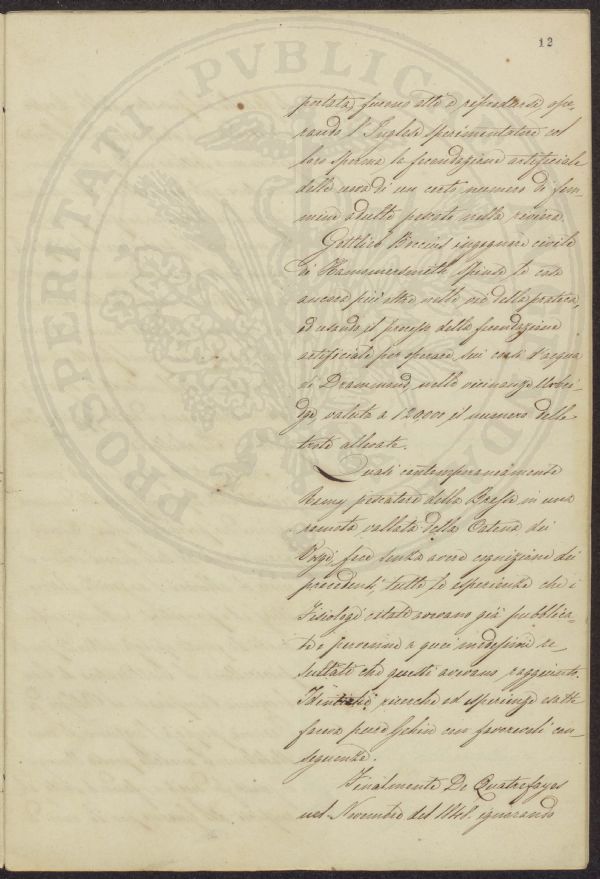 12
PROSPERITATI PVBLICAE
portata, furono atti a riprodursi ope-
rando l'Inglese sperimentatore col
loro sperma la fecondazione artificiale
delle uova di un certo numero di fem-
mine adulte pescate nella riviera.
Gottlieb Boccius ingegnere civile
di Hammersmith spinse le cose
ancora più oltre nella via della pratica,
ed usando il processo della fecondazione
artificiale per operare sui corsi d'acqua
di Drummond, nelle vicinanze Uxbri-
dge, valuta a 120000 il numero delle
trote allevate.
Quasi contemporaneamente
Remy pescatore della Bresse in una
remota vallata della Catena dei
Vosgi, fece senza avere cognizione dei
precedenti, tutte le esperienze che i
Fisiologi citati avevano già pubblica-
to e pervenne a quei medesimi ri-
sultati che questi avevano raggiunto.
Identiche ricerche ed esperienze esatte
faceva pure Gehin con favorevoli con-
seguenze.
Finalmente De Quatrefages
nel Novembre del 1848. ignorando